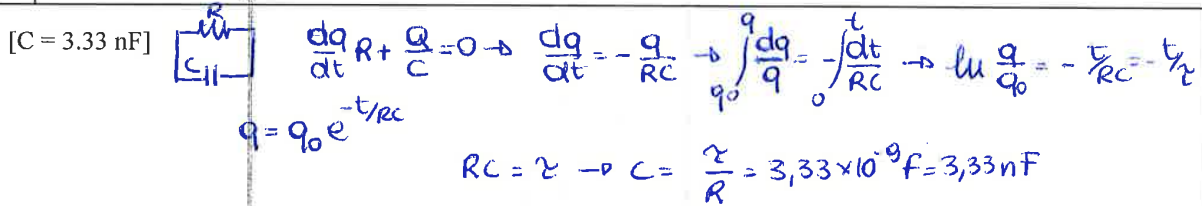 [C = 3.33 nF] R C dq/dt R + Q/C = 0 → dq/dt = - q/RC → ∫_{q0}^{q} dq/q = - ∫_{0}^{t} dt/RC → ln q/q0 = - t/RC = - t/τ
q = q0 e^{-t/RC}
RC = τ → C = τ/R = 3,33 × 10^{-9} F = 3,33 nF